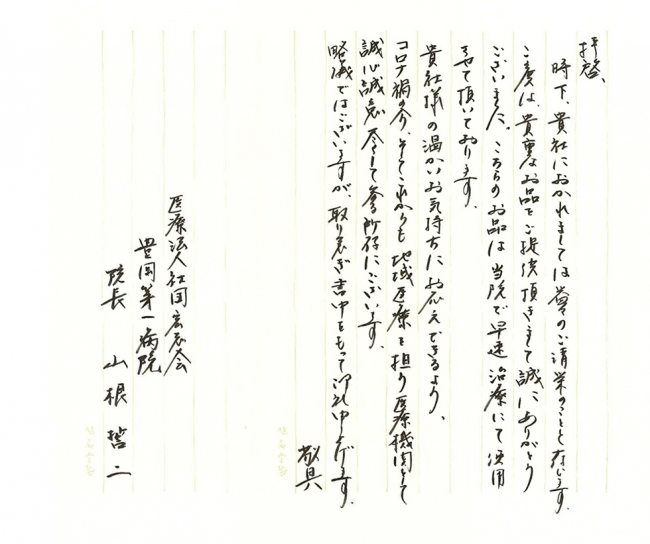 拝啓、
時下、貴社におかれましては益々のご清栄のこととなります。
この度は、貴重なお品をご提供頂きまして誠にありがとう
ございました。こちらのお品は当院で早速治療にて使用
させて頂いております。
貴社様の温かいお気持ちにお応えできるよう、
コロナ禍の介、そしてこれからも地域医療を担う医療機関として
誠心誠意尽くして参る所存にございます。
略儀ではございますが取り急ぎ書中をもって御礼申し上げます。
敬具
医療法人社団宏志会
豊岡第一病院
院長 山根哲二